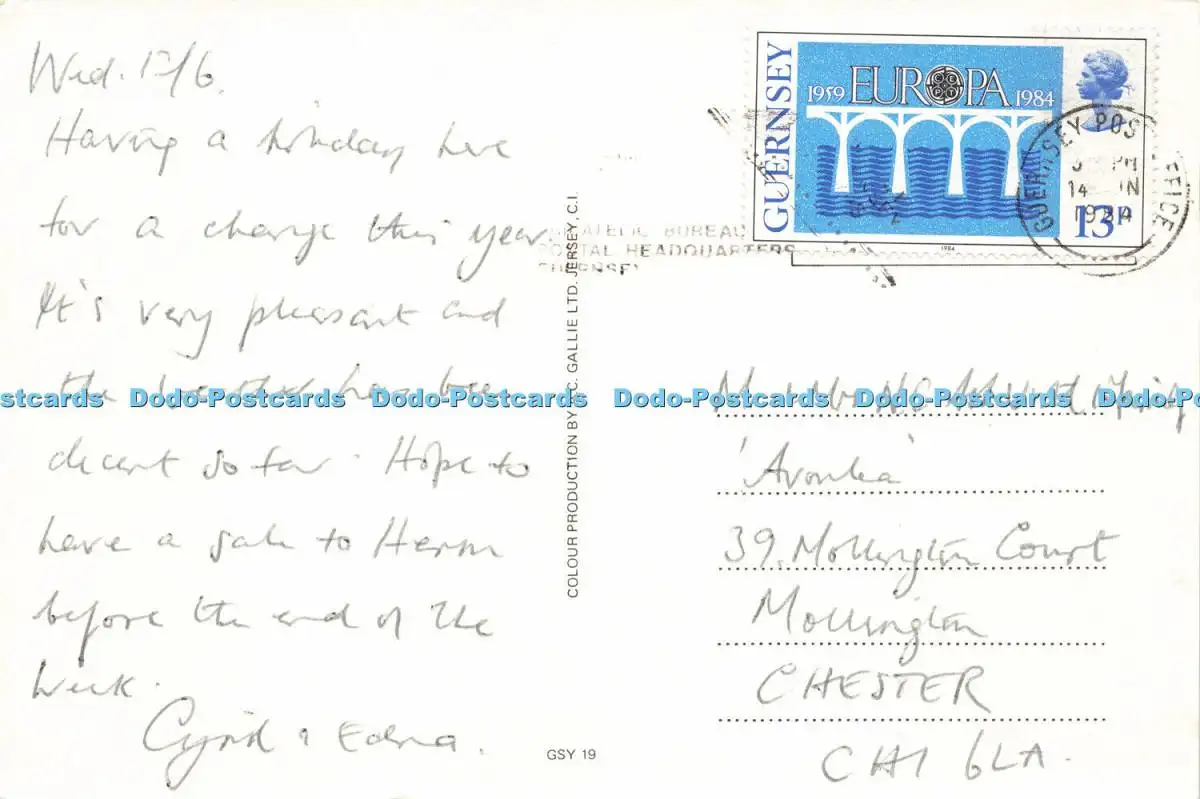 Wed. 13/6.
Having a holiday here
for a change this year
It's very pleasant and
the weather has been
decent so far. Hope to
have a sail to Herm
before the end of the
week.
Cyril & Edna.
COLOUR PRODUCTION BY C. GALLIE LTD. JERSEY, C.I.
GSY 19
GUERNSEY
1959 EUROPA 1984
CEPT
13P
1984
GUERNSEY POST OFFICE
PM
14
1984
PHILATELIC BUREAU
POSTAL HEADQUARTERS
GUERNSEY
Dodo-Postcards Dodo-Postcards Dodo-Postcards Dodo-Postcards Dodo-Postcards
'Avonlea'
39, Mollington Court
Mollington
CHESTER
CH1 6LA.